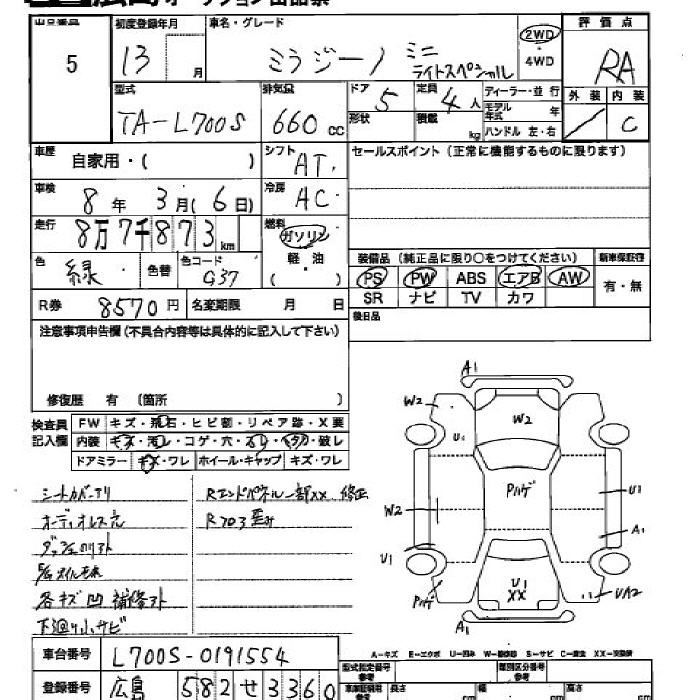 出品番号 初度登録年月 車名・グレード 評価点
5 13 月 ミラジーノ ミニライトスペシャル 2WD 4WD RA
外装 内装
C
型式 排気量 ドア 定員 ディーラー・並行
TA-L700S 660 cc 5 4 人 モデル年式 年
形状 積載 kg ハンドル 左・右
車歴 自家用・( ) シフト AT セールスポイント (正常に機能するものに限ります)
車検 8 年 3 月 (6 日) 冷房 AC
走行 8万7千873 km 燃料 ガソリン
軽・油
( )
色 緑 色替 色コード G37
装備品 (純正品に限り○をつけてください) 新車保証書
PS PW ABS エアB AW 有・無
SR ナビ TV カワ
R券 8570 円 名変期限 月 日 後日品
注意事項申告欄 (不具合内容等は具体的に記入して下さい)
修復歴 有 (箇所 )
検査員記入欄 FW キズ・飛石・ヒビ割・リペア跡・X要
内装 キズ・汚レ・コゲ・穴・スレ・破レ
ドアミラー キズ・ワレ ホイール・キャップ キズ・ワレ
シートカバーアリ Rエンドパネル一部XX 修正
オーディオレス R703歪み
各キズ凹 補修
下廻り小サビ
A1
W2 W2
U1
Pハゲ
W2 U1
A1
U1
Pハゲ U1 XX UA2
A1
A-キズ E-エクボ U-凹み W-補修跡 S-サビ C-腐食 XX-交換済
車台番号 L700S-0191554 型式指定番号 参考 類別区分番号 参考
登録番号 広島 582 せ 3360 長さ cm 幅 cm 高さ cm